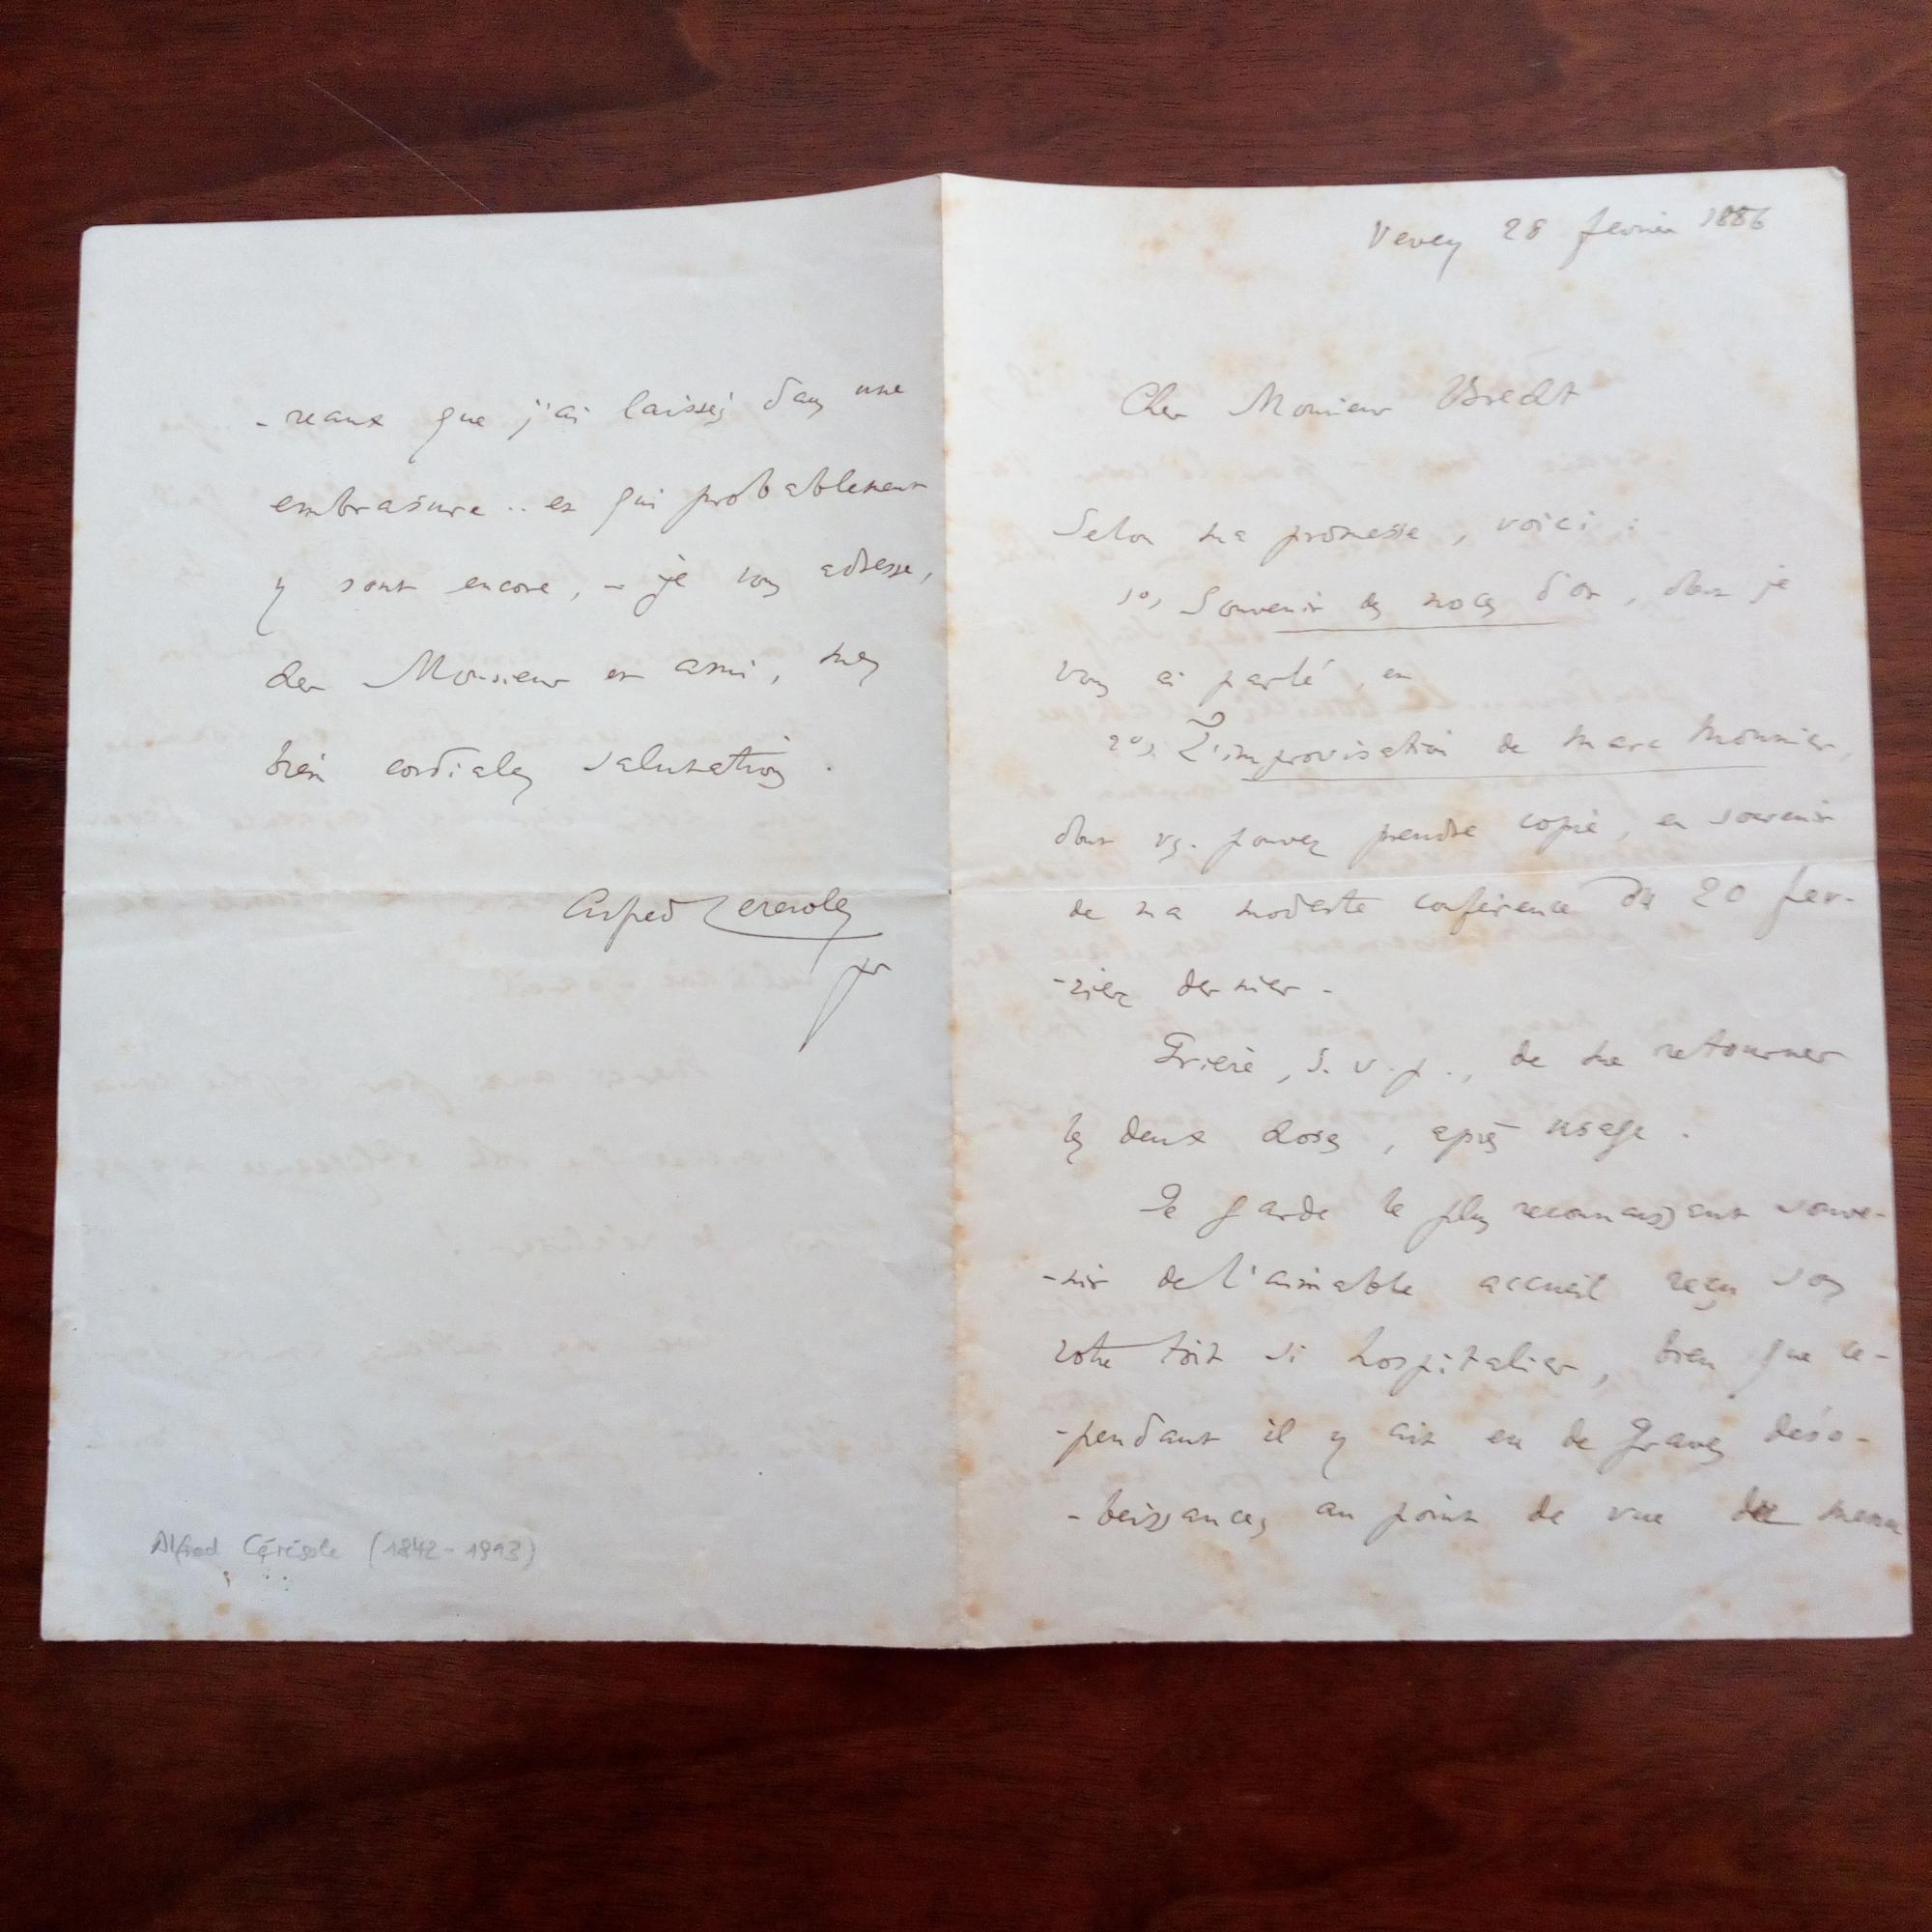 Vevey 28 fevrier 1886
Cher Monsieur Brecht
Selon ma promesse, voici :
1o, Souvenir des noces d'or, dont je
vous ai parlé, et
2o, L'improvisation de Marc Monnier,
dont vs. pouvez prendre copie, en souvenir
de ma modeste conférence du 20 fev-
-rier dernier -
Prière, s. v. p., de me retourner
les deux choses, après usage.
Je garde le plus reconnaissant souve-
-nir de l'aimable accueil reçu sous
votre toit si hospitalier, bien que ce-
-pendant il y ait eu de graves déso-
-beissances au point de vue du menu
-reaux que j'ai laissés dans une
embrasure .. et qui probablement
y sont encore, - je vous adresse,
cher Monsieur et ami, mes
bien cordiales salutations.
Alfred Ceresole
pr
Alfred Cérésole (1842-1913)